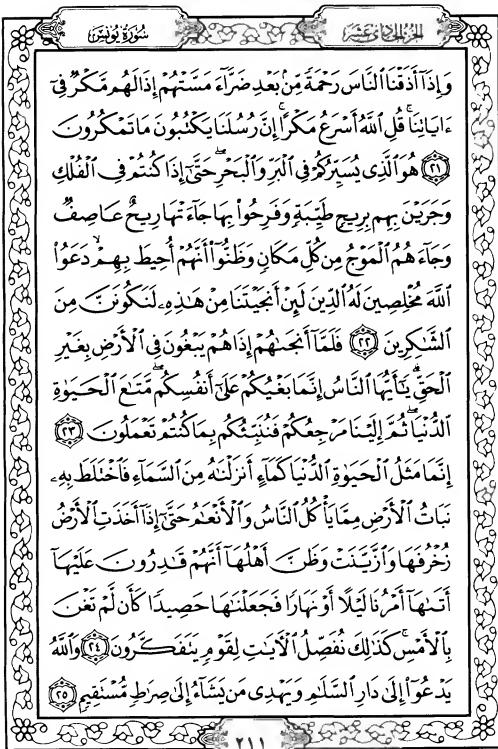 سُورَةُ يُونُسَ
الجُزْءُ الحَادِي عَشَرَ
وَإِذَآ أَذَقْنَا ٱلنَّاسَ رَحْمَةً مِّنۢ بَعْدِ ضَرَّآءَ مَسَّتْهُمْ إِذَا لَهُم مَّكْرٌ فِىٓ
ءَايَاتِنَا ۚ قُلِ ٱللَّهُ أَسْرَعُ مَكْرًا ۚ إِنَّ رُسُلَنَا يَكْتُبُونَ مَا تَمْكُرُونَ
٢١ هُوَ ٱلَّذِى يُسَيِّرُكُمْ فِى ٱلْبَرِّ وَٱلْبَحْرِ ۖ حَتَّىٰٓ إِذَا كُنتُمْ فِى ٱلْفُلْكِ
وَجَرَيْنَ بِهِم بِرِيحٍ طَيِّبَةٍ وَفَرِحُوا۟ بِهَا جَآءَتْهَا رِيحٌ عَاصِفٌ
وَجَآءَهُمُ ٱلْمَوْجُ مِن كُلِّ مَكَانٍ وَظَنُّوٓا۟ أَنَّهُمْ أُحِيطَ بِهِمْ ۙ دَعَوُا۟
ٱللَّهَ مُخْلِصِينَ لَهُ ٱلدِّينَ لَئِنْ أَنجَيْتَنَا مِنْ هَـٰذِهِۦ لَنَكُونَنَّ مِنَ
ٱلشَّـٰكِرِينَ ٢٢ فَلَمَّآ أَنجَىٰهُمْ إِذَا هُمْ يَبْغُونَ فِى ٱلْأَرْضِ بِغَيْرِ
ٱلْحَقِّ ۗ يَـٰٓأَيُّهَا ٱلنَّاسُ إِنَّمَا بَغْيُكُمْ عَلَىٰٓ أَنفُسِكُم ۖ مَّتَـٰعَ ٱلْحَيَوٰةِ
ٱلدُّنْيَا ۖ ثُمَّ إِلَيْنَا مَرْجِعُكُمْ فَنُنَبِّئُكُم بِمَا كُنتُمْ تَعْمَلُونَ ٢٣
إِنَّمَا مَثَلُ ٱلْحَيَوٰةِ ٱلدُّنْيَا كَمَآءٍ أَنزَلْنَـٰهُ مِنَ ٱلسَّمَآءِ فَٱخْتَلَطَ بِهِۦ
نَبَاتُ ٱلْأَرْضِ مِمَّا يَأْكُلُ ٱلنَّاسُ وَٱلْأَنْعَـٰمُ حَتَّىٰٓ إِذَآ أَخَذَتِ ٱلْأَرْضُ
زُخْرُفَهَا وَٱزَّيَّنَتْ وَظَنَّ أَهْلُهَآ أَنَّهُمْ قَـٰدِرُونَ عَلَيْهَآ
أَتَىٰهَآ أَمْرُنَا لَيْلًا أَوْ نَهَارًا فَجَعَلْنَـٰهَا حَصِيدًا كَأَن لَّمْ تَغْنَ
بِٱلْأَمْسِ ۚ كَذَٰلِكَ نُفَصِّلُ ٱلْـَٔايَـٰتِ لِقَوْمٍ يَتَفَكَّرُونَ ٢٤ وَٱللَّهُ
يَدْعُوٓا۟ إِلَىٰ دَارِ ٱلسَّلَـٰمِ وَيَهْدِى مَن يَشَآءُ إِلَىٰ صِرَٰطٍ مُّسْتَقِيمٍ ٢٥
٢١١